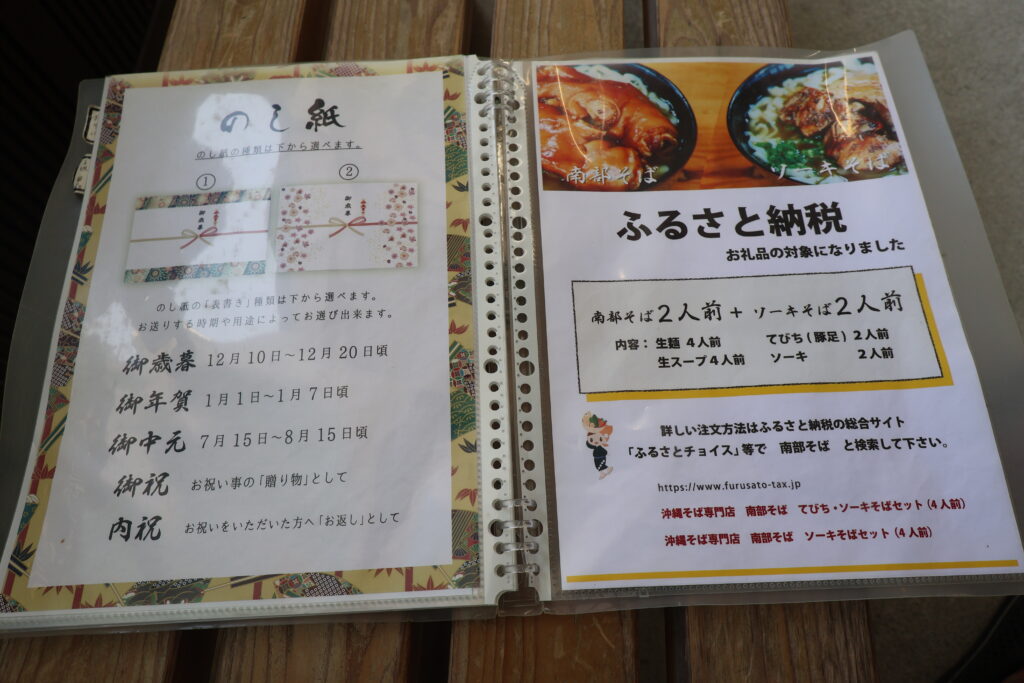 のし紙
のし紙の種類は下から選べます。
① ②
御歳暮
御歳暮
のし紙の「表書き」種類は下から選べます。
お送りする時期や用途によってお選び出来ます。
御歳暮 12月10日～12月20日頃
御年賀 1月1日～1月7日頃
御中元 7月15日～8月15日頃
御祝 お祝い事の「贈り物」として
内祝 お祝いをいただいた方へ「お返し」として
南部そば ソーキそば
ふるさと納税
お礼品の対象になりました
南部そば2人前+ソーキそば2人前
内容：生麺 4人前 てびち(豚足) 2人前
生スープ4人前 ソーキ 2人前
詳しい注文方法はふるさと納税の総合サイト
「ふるさとチョイス」等で 南部そば と検索して下さい。
https://www.furusato-tax.jp
沖縄そば専門店 南部そば てびち・ソーキそばセット（4人前）
沖縄そば専門店 南部そば ソーキそばセット（4人前）